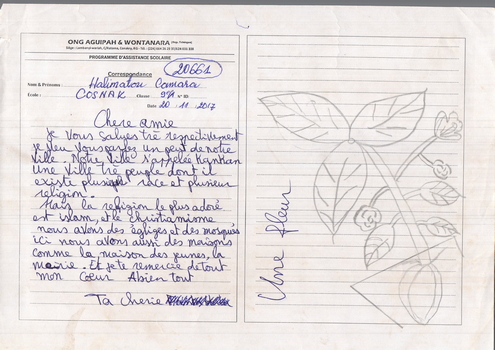 ONG AGUIPAH & WONTANARA
PROGRAMME D'ASSISTANCE SCOLAIRE
Correspondance
20661
Nom & Prénoms : Halimatou Camara
Ecole : COSNAK Classe 9ème
Date 20-11-2017
Chere amie
Je Vous Salues trè respectivement
je veu vous parlez un peut de notre
ville. Notre ville s'appelée Kankan
Une ville trè peuple dont il
existe plusieur race et plusieur
religion.
Mais la religion le plus adoré
est islam, et le christianisme
nous avons des églises et des mosqués
ici nous avons aussi des maisons
comme la maison des jeunes, la
mairie. Et je te remercie de tout
mon Coeur Abien tout
Ta cherie
Une fleur